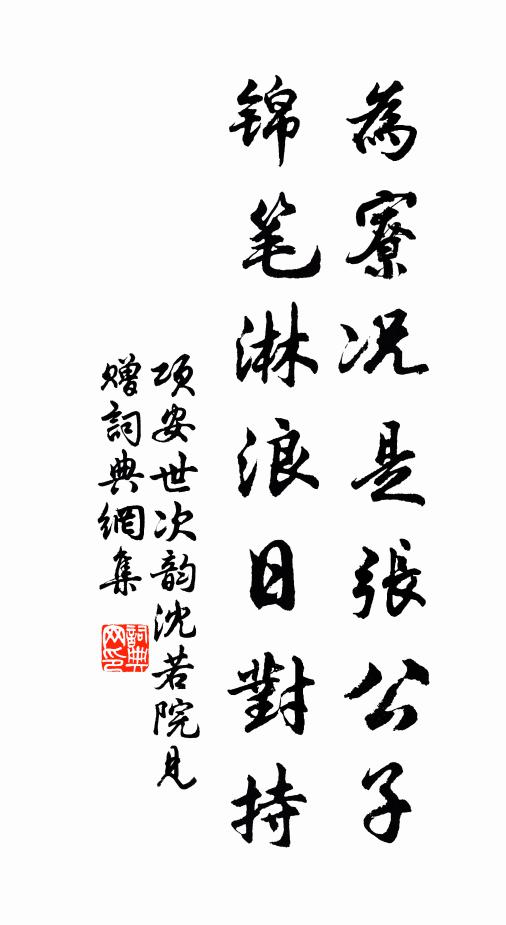 為寮况是張公子
锦笔淋浪日對持
项安世次韵沈若院見
赠詞典網集
詞典網印